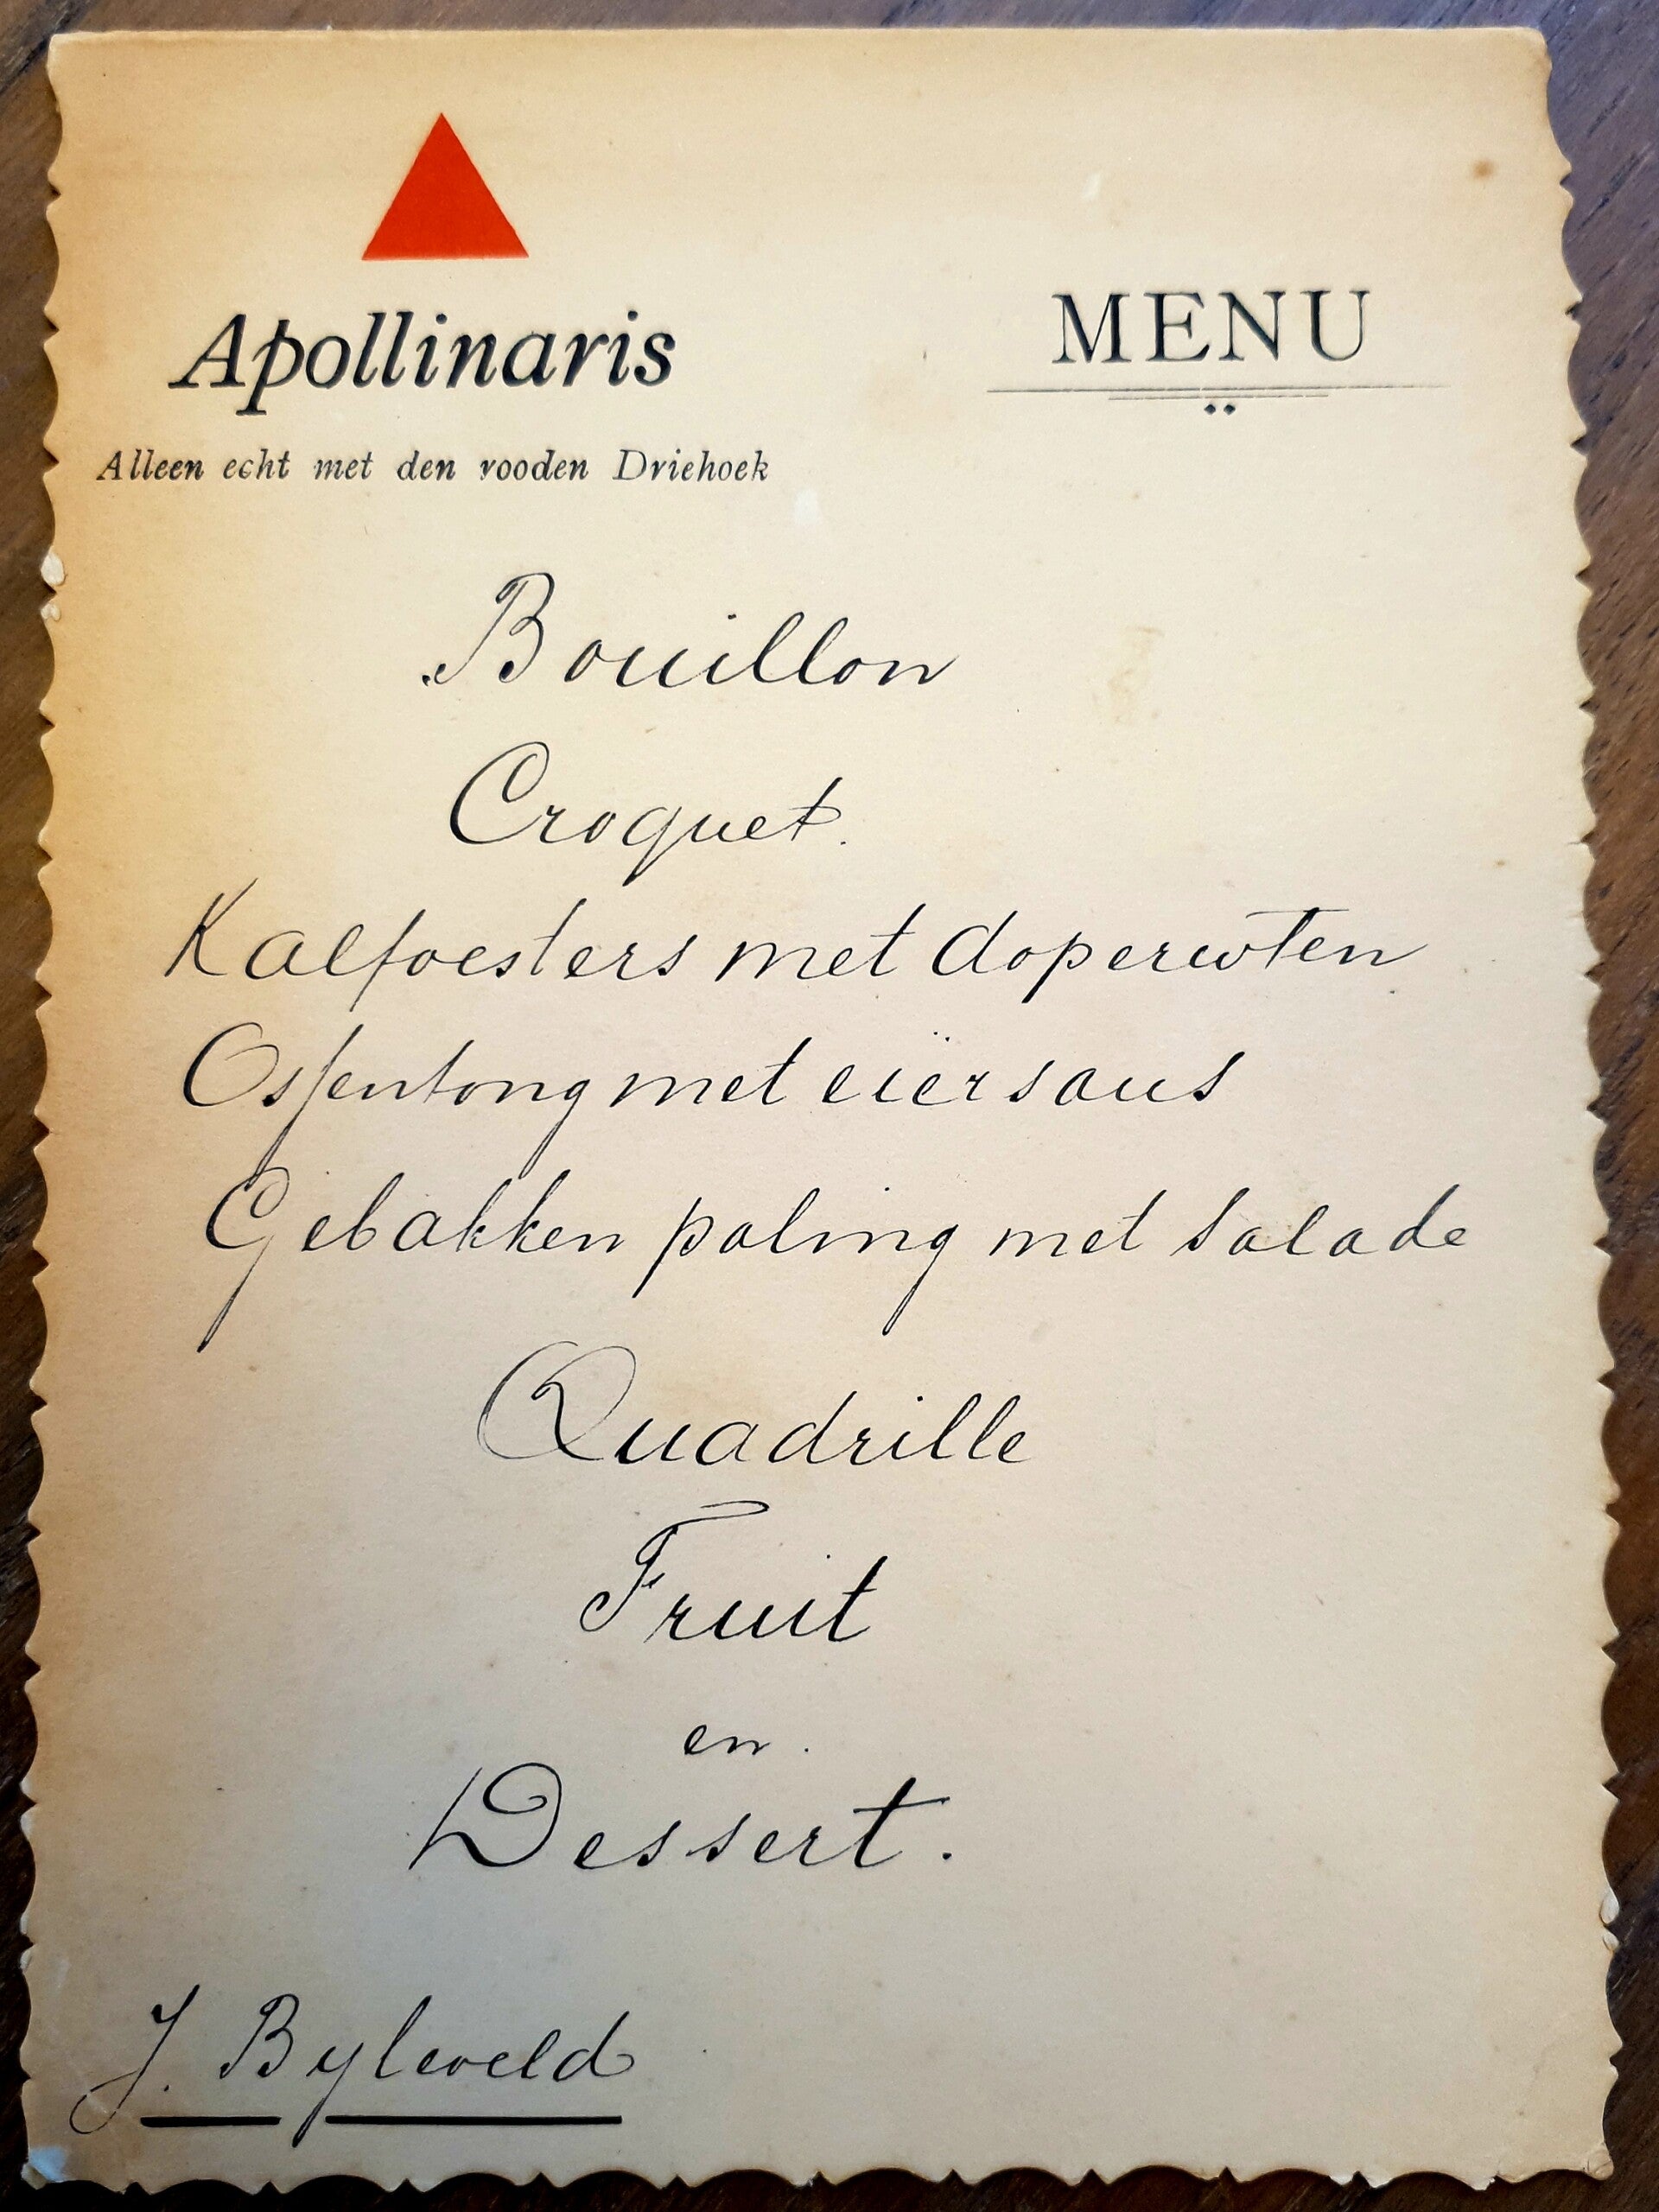 Apollinaris
MENU
Alleen echt met den rooden Driehoek
Bouillon
Croquet.
Kalfoesters met doperwten
Ossentong met eiersaus
Gebakken paling met salade
Quadrille
Fruit
en.
Dessert.
J. Byleveld